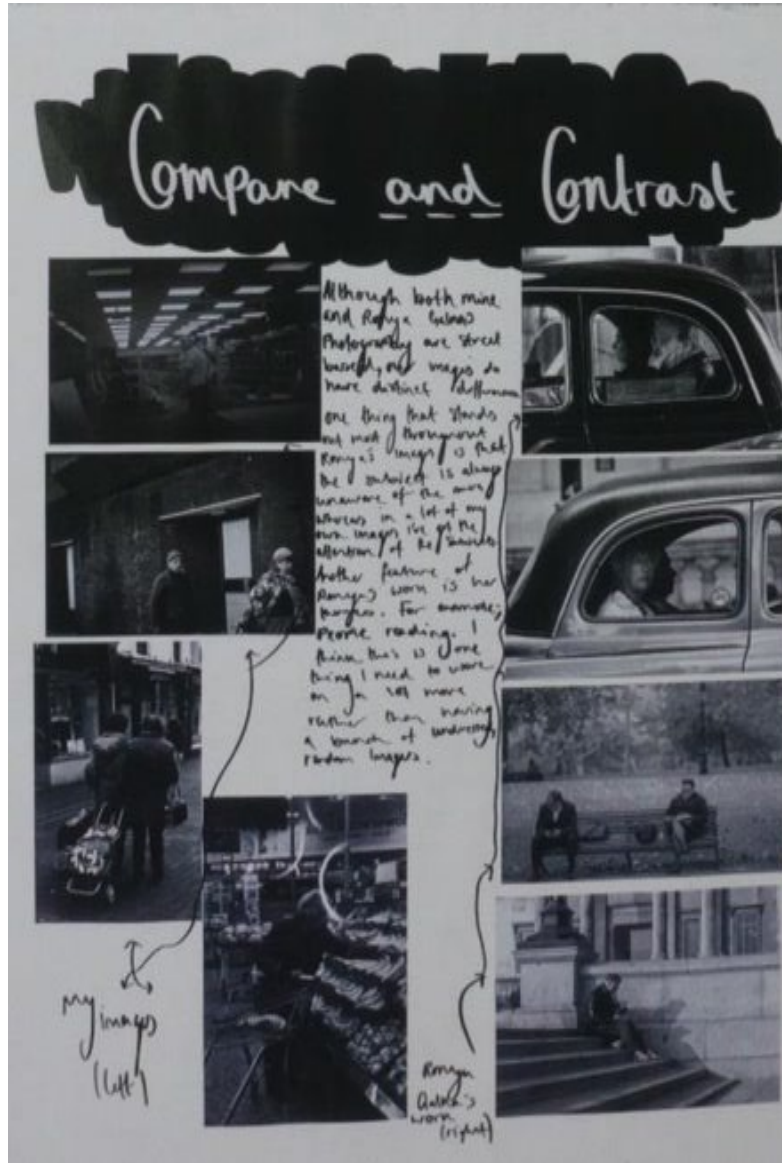 Compare and Contrast
Although both mine
and Ronya Galka's
Photography are street
based, our images do
have distinct differences
one thing that stands
out most throughout
Ronya's images is that
the subject is always
unaware of the
whereas in a lot of my
own images i've got the
attention of the
Another feature of
Ronya's work is her
For example;
People reading. I
think this is one
thing I need to work
on a lot more
rather than having
a bunch of
random images.
My images
(left)
Ronya
Galka's
work
(right)